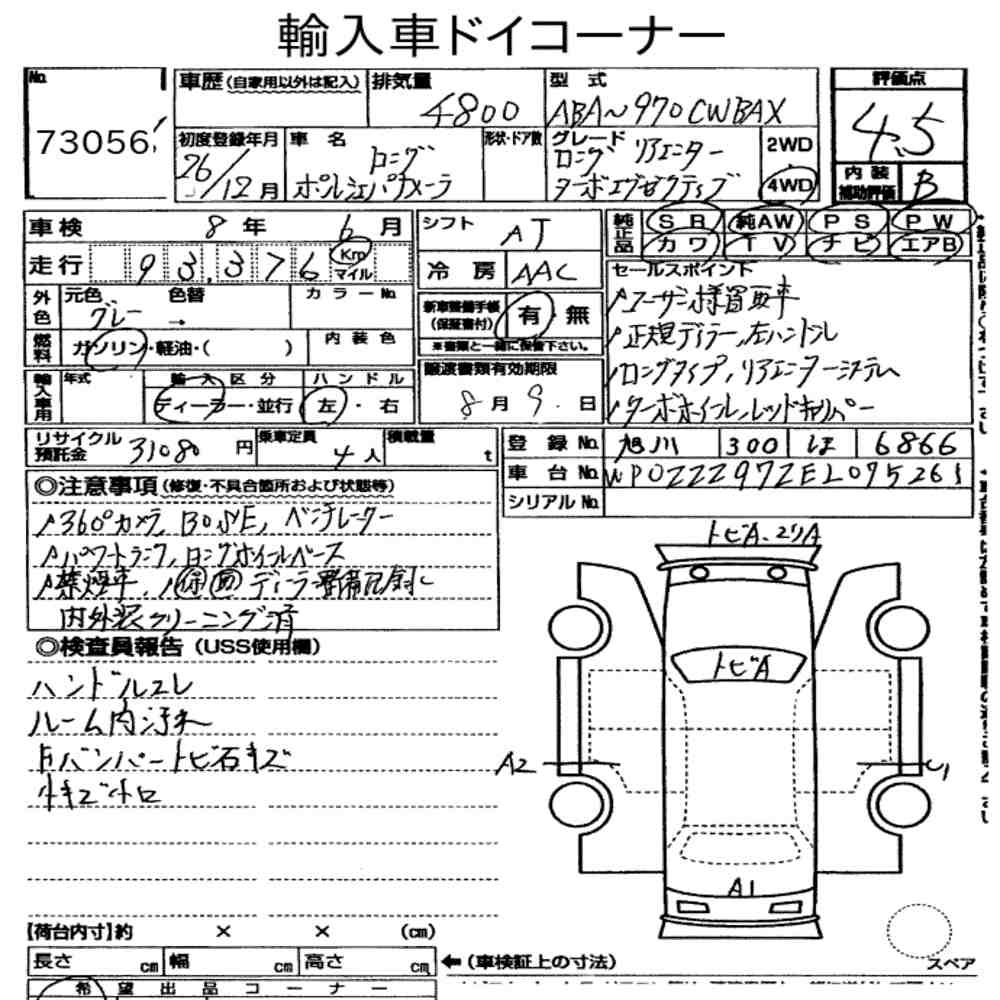 輸入車ドイコーナー
No.
73056
車歴(自家用以外は記入)
排気量
4800
型 式
ABA~970CWBAX
評価点
4.5
初度登録年月
26/12月
車 名
ロング
ポルシェパナメーラ
形状・ドア数
グレード
ロング リアエンター
ターボエグゼクティブ
2WD
4WD
内 装
補助評価
B
車検 8年 6月
シフト
AT
純正品
SR 純AW PS PW
カワ TV ナビ エアB
走行 93,376 Km マイル
冷 房
AAC
セールスポイント
ユーザー様買取車
正規ディーラー,左ハンドル
ロングタイプ,リアエンターシステム
ターボホイール,レッドキャリパー
外色
元色 色替
グレー →
カラーNo.
新車整備手帳
(保証書付)
有・無
※書類と一緒に保管下さい。
燃料
ガソリン・軽油・( )
内 装 色
輸入車用
年式
輸 入 区 分
ディーラー・並行
ハ ン ド ル
左 ・ 右
譲渡書類有効期限
8月 9.日
リサイクル
預託金
31080円
乗車定員
4人
積載量
t
登 録 No.
旭川 300 ほ 6866
車 台 No.
WP0ZZZ97ZEL075261
シリアル No.
◎注意事項(修復・不具合箇所および状態等)
360°カメラ, BOSE, ベンチレーター
パワートランク,ロングホイールベース
禁煙車, 保 図 ディーラー整備記録
内外装クリーニング済
◎検査員報告(USS使用欄)
ハンドルスレ
ルーム内汚れ
Fバンパートビ石キズ
小キズ小凹
トビA・スリA
トビA
A2
U1
A1
【荷台内寸】約 × × (cm)
長さ cm 幅 cm 高さ cm
←(車検証上の寸法)
スペア
希 望 出 品 コ ー ナ ー